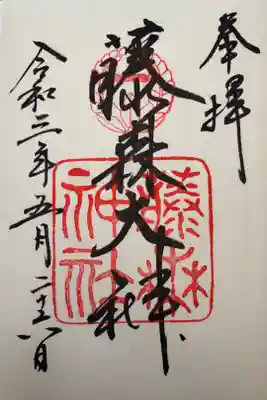 奉拝
藤森大神
藤森
神社
令和三年五月二十八日